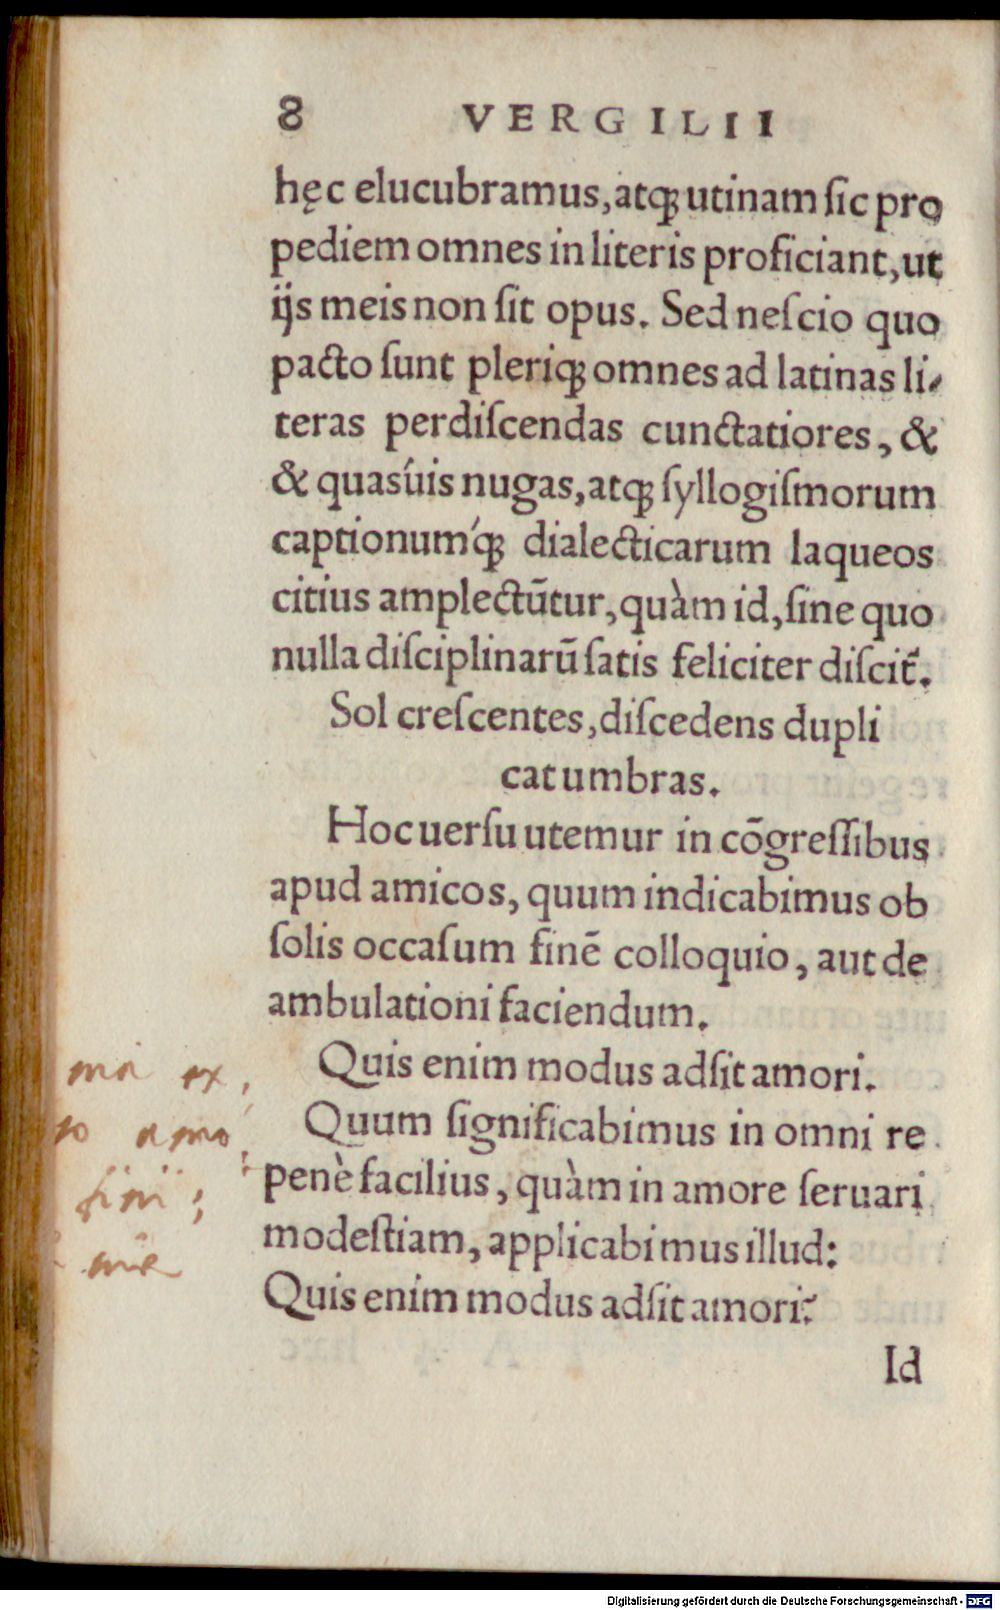 8 VERGILII
hęc elucubramus, atqꝫ utinam ſic pro
pediem omnes in literis proficiant, ut
ijs meis non ſit opus. Sed neſcio quo
pacto ſunt pleriqꝫ omnes ad latinas li⸗
teras perdiſcendas cunctatiores, &
& quasúis nugas, atqꝫ ſyllogiſmorum
captionuḿqꝫ dialecticarum laqueos
citius amplectūtur, quàm id, ſine quo
nulla diſciplinarū ſatis feliciter diſcit᷑.
Sol creſcentes, diſcedens dupli
cat umbras.
Hoc uerſu utemur in cōgreſſibus
apud amicos, quum indicabimus ob
ſolis occaſum finē colloquio, aut de
ambulationi faciendum.
Quis enim modus adſit amori.
Quum ſignificabimus in omni re
penè facilius, quàm in amore ſeruari
modeſtiam, applicabimus illud:
Quis enim modus adſit amori?
Id
Digitalisierung gefördert durch die Deutsche Forschungsgemeinschaft - DFG